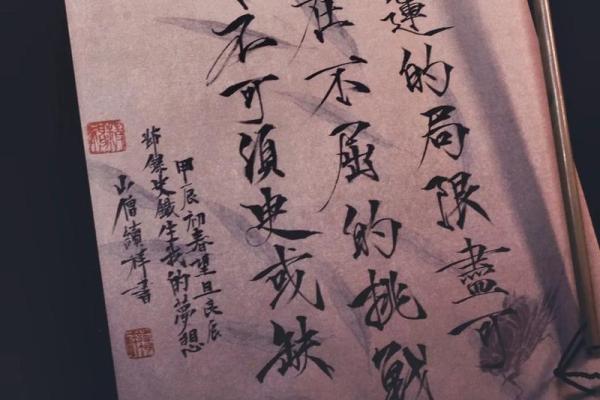 運的局限盡可
在不屈的挑戰
不可須臾或缺
甲辰初春望旦良辰
節錄史鐵生我的夢想
山僧績祥書